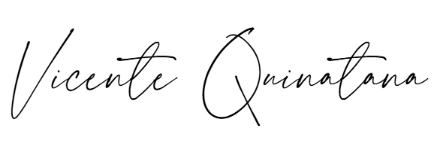 Vicente Quinatana